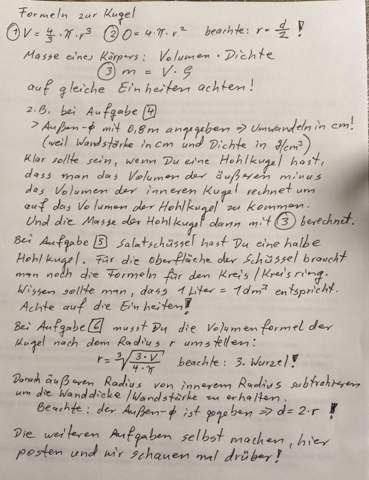 Formeln zur Kugel
① V = 4/3 · π · r³ ② O = 4 · π · r² beachte: r = d/2 !
Masse eines Körpers: Volumen · Dichte
③ m = V · ϱ
auf gleiche Einheiten achten!
z.B. bei Aufgabe 4
> Außen-ϕ mit 0,8m angegeben ⇒ Umwandeln in cm!
(weil Wandstärke in cm und Dichte in g/cm³)
Klar sollte sein, wenn Du eine Hohlkugel hast,
dass man das Volumen der äußeren minus
das Volumen der inneren Kugel rechnet um
auf das Volumen der Hohlkugel zu kommen.
Und die Masse der Hohlkugel dann mit ③ berechnet.
Bei Aufgabe 5 Salatschüssel hast Du eine halbe
Hohlkugel. Für die Oberfläche der Schüssel braucht
man noch die Formeln für den Kreis/Kreisring.
Wissen sollte man, dass 1 Liter = 1 dm³ entspricht.
Achte auf die Einheiten!
Bei Aufgabe 6 musst Du die Volumenformel der
Kugel nach dem Radius r umstellen:
r = ³√(3·V / 4·π) beachte: 3. Wurzel!
Danach äußeren Radius von innerem Radius subtrahieren
um die Wanddicke/Wandstärke zu erhalten.
Beachte: der Außen-ϕ ist gegeben ⇒ d = 2·r !
Die weiteren Aufgaben selbst machen, hier
posten und wir schauen mal drüber!